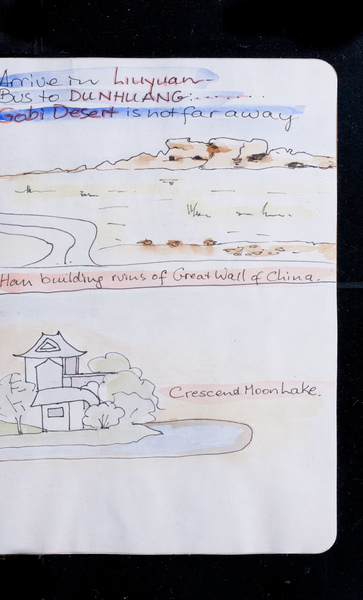 Arrive in Liuyuan
Bus to DUNHUANG.......
Gobi Desert is not far away
Han building ruins of Great Wall of China.
Crescend Moon Lake.